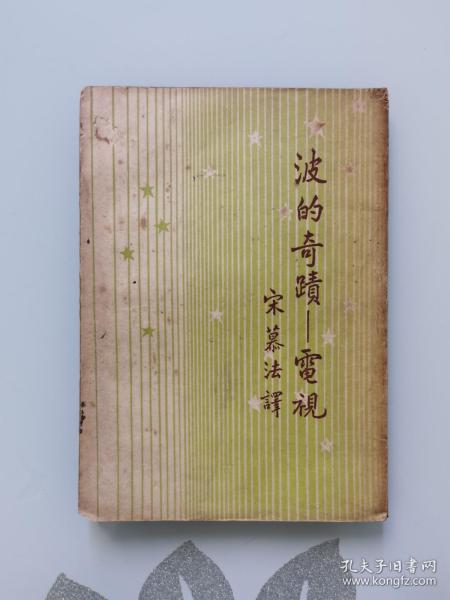 波的奇蹟—電視
宋慕法譯
孔夫子旧书网
www.kongfz.com